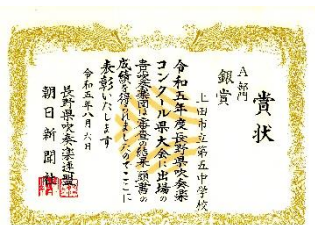 賞状
A部門
銀賞
上田市立第五中学校
令和五年度長野県吹奏楽
コンクール県大会に出場の
貴吹奏楽団は審査の結果頭書の
成績を得られましたのでここに
表彰いたします
令和五年八月六日
長野県吹奏楽連盟
朝日新聞社